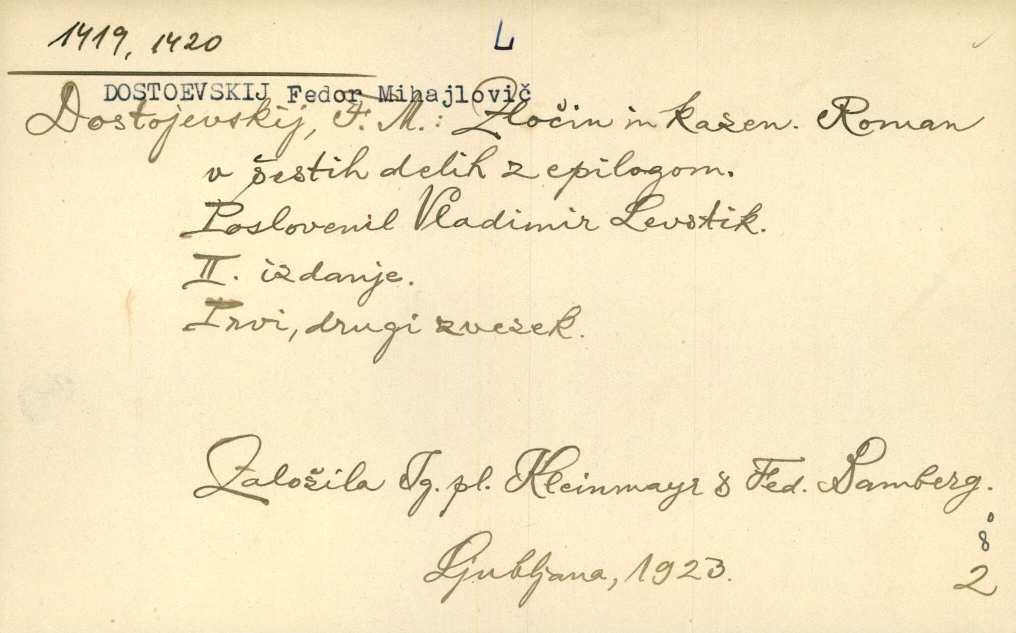 1419, 1420
L
DOSTOEVSKIJ Fedor Mihajlovič
Dostojevskij, F. M.: Zločin in kazen. Roman
v šestih delih z epilogom.
Poslovenil Vladimir Levstik.
II. izdanje.
Prvi, drugi zvezek.
Založila Ig. pl. Kleinmayr & Fed. Bamberg.
8°
Ljubljana, 1923.
2